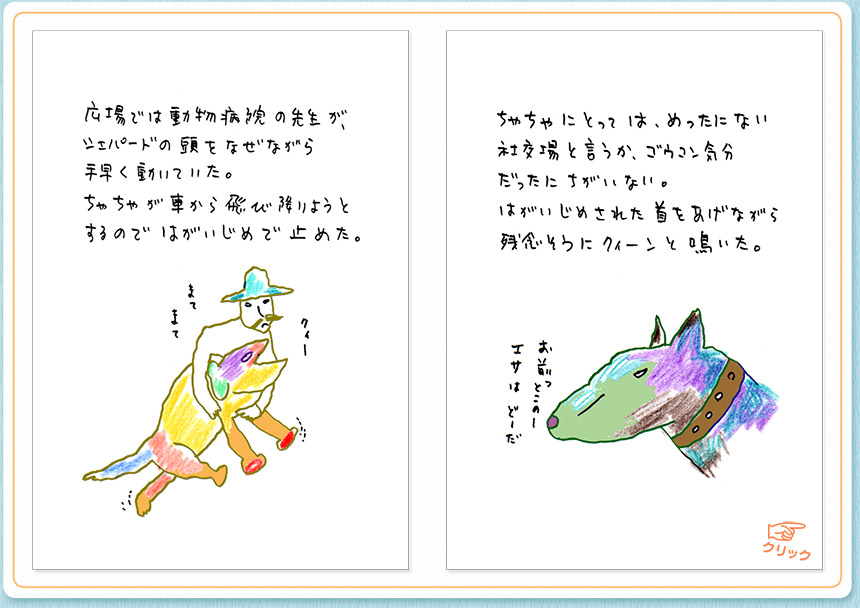 広場では動物病院の先生が、
シェパードの頭をなぜながら
手早く動いていた。
ちゃちゃが車から飛び降りようと
するのではがいじめで止めた。
まて
まて
クィー
ちゃちゃにとっては、めったにない
社交場と言うか、ゴウコン気分
だったにちがいない。
はがいじめされた首をあげながら
残念そうにクィーンと鳴いた。
お前っとこのー
エサはどーだ
クリック